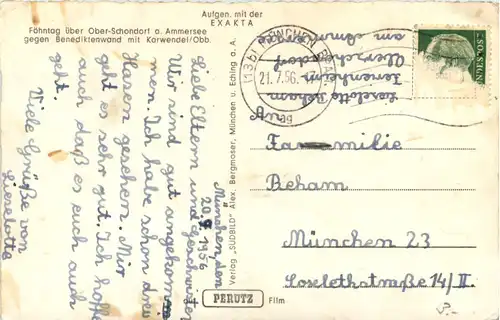 Aufgen. mit der
EXAKTA
Föhntag über Ober-Schondorf a. Ammersee
gegen Benediktenwand mit Karwendel/Obb.
München, den
20. 7. 1956
Liebe Eltern und Geschwister
Wir sind gut angekom-
men. Ich habe schon drei
Hasen gesehen. Mir
geht es sehr gut. Ich hoffe
auch daß es euch auch
geht.
Viele Grüße von
Lieselotte
Verlag „SÜDBILD" Alex. Bergmoser, München u. Eching a. A.
auf PERUTZ Film
(13b) MÜNCHEN
21.7.56
Lieselotte Beham
Ferienheim
am Ammersee
An
Familie
Beham
München 23
Loselothstraße 14/II.